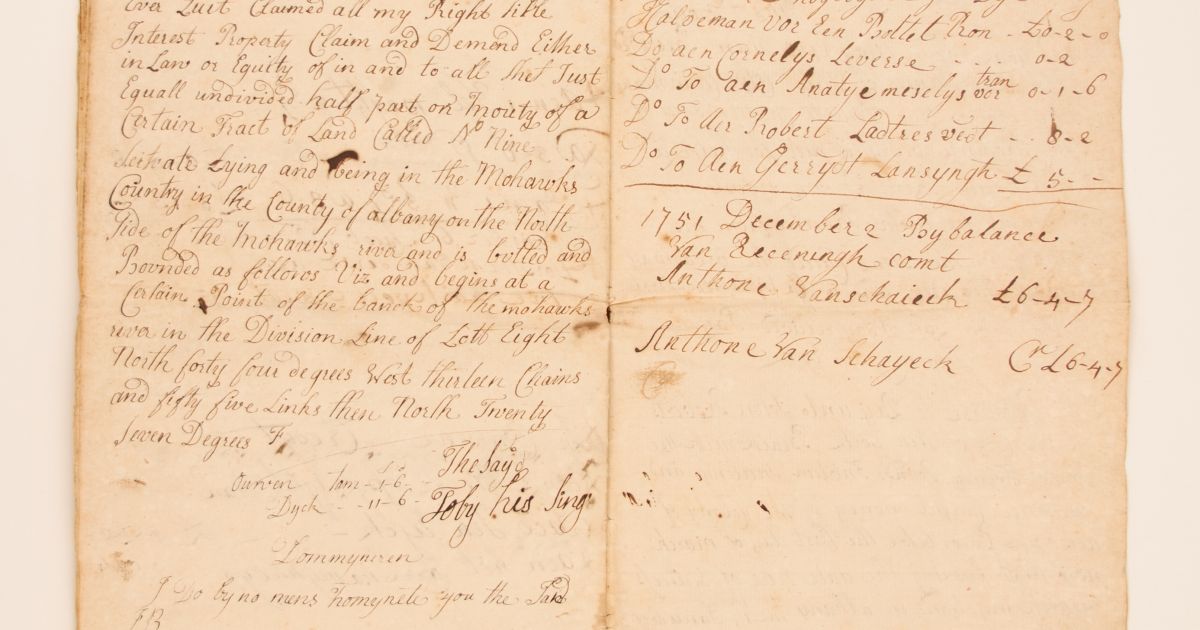 Ever Quit Claimed all my Right title
Interest Property Claim and Demend Either
in Law or Equity of in and to all that Just
Equall undivided half part or moiety of a
Certain Tract of Land Called No Nine
Scituate Lying and being in the Mohawks
Country in the County of albany on the North
Side of the Mohawks river and is butted and
Bounded as follows Viz and begins at a
Certain Point of the banck of the mohawks
river in the Division Line of Lott Eight
North forty four degrees West thirteen Chains
and fifty five Links then North Twenty
Seven Degrees
The Sayd
tam - 1-6 -
Dyck - - 11-6 - Toby his Sing
Dommyneren
I Do by no mens Domynele you the
Haldeman vor Een Bottel Rom - £0-2-0
Do aen Cornelys Leverse - - - - 0-2
tran
Do To aen Anatye meselys vor 0-1-6
Do To Robert - - 8-2
Do To Aen Gerryt Lansyngh £ 5 - -
1751 December 2 By balance
Van Receningh comt
Anthone Vanschaieck £6-4-7
Anthone Van Schayeck Cr £6-4-7